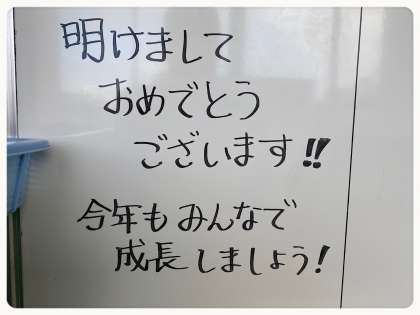 明けまして
おめでとう
ございます!!
今年もみんなで
成長しましょう!